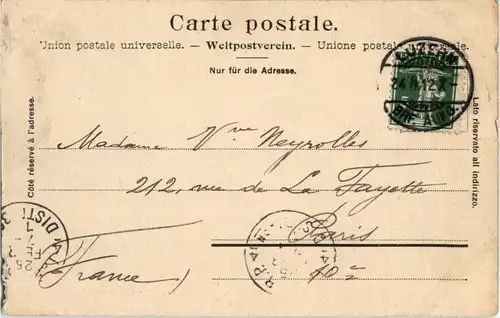 Carte postale.
Union postale universelle. — Weltpostverein. — Unione postale universale.
Nur für die Adresse.
Côté réservé à l'adresse.
Lato riservato all indirizzo.
LUZERN
BRF. AUFG.
Madame Vve Neyrolles
212, rue de La Fayette
Paris
10e
(France)
DISTR